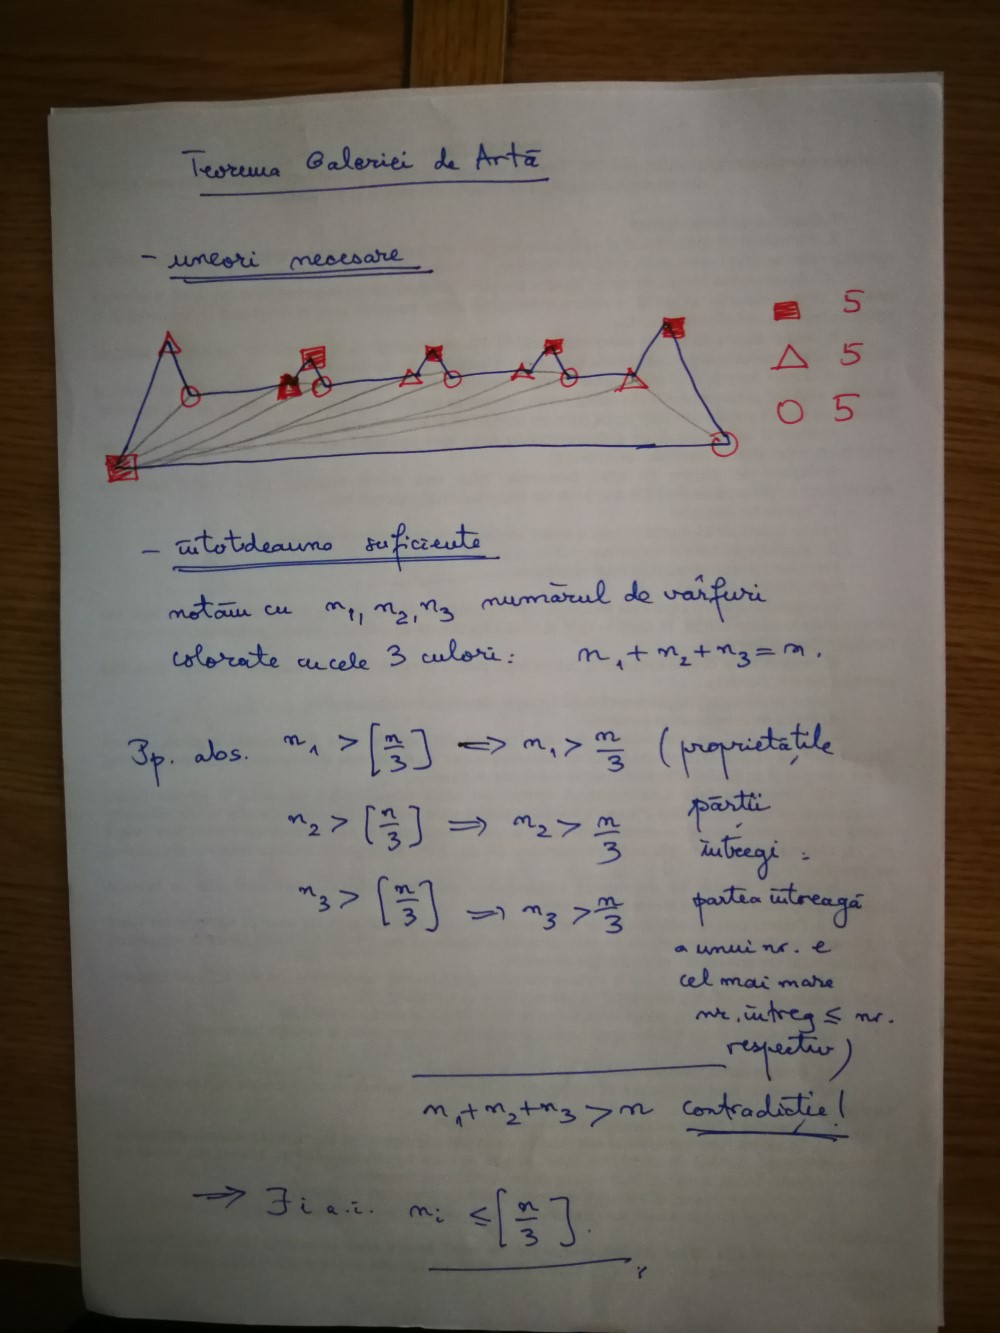 Teorema Galeriei de Artă
- uneori necesare
■ 5
△ 5
○ 5
- întotdeauna suficiente
notăm cu n₁, n₂, n₃ numărul de vârfuri
colorate cu cele 3 culori: n₁ + n₂ + n₃ = n.
Pp. abs. n₁ > [n/3] ⇒ n₁ > n/3 (proprietățile
părții
n₂ > [n/3] ⇒ n₂ > n/3 întregi :
n₃ > [n/3] ⇒ n₃ > n/3 partea întreagă
a unui nr. e
cel mai mare
nr. întreg ≤ nr.
respectiv)
n₁ + n₂ + n₃ > n contradicție!
⇒ ∃ i a.î. nᵢ ≤ [n/3].